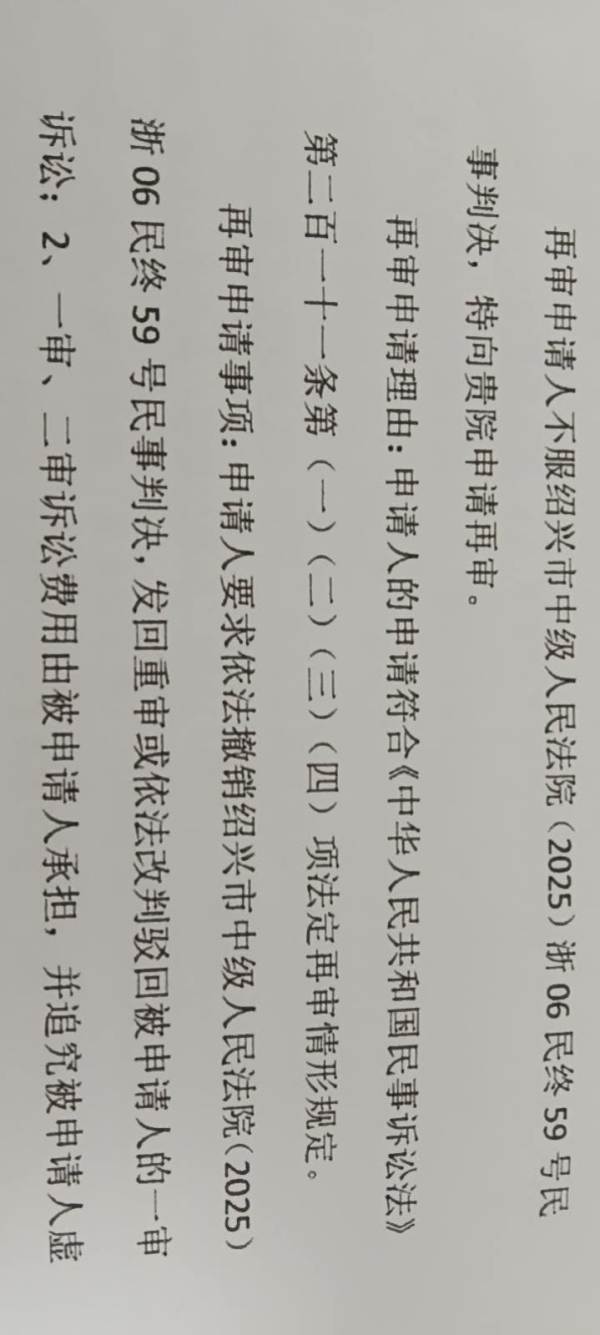 再审申请人不服绍兴市中级人民法院（2025）浙 06 民终 59 号民
事判决，特向贵院申请再审。
再审申请理由：申请人的申请符合《中华人民共和国民事诉讼法》
第二百一十一条第（一）（二）（三）（四）项法定再审情形规定。
再审申请事项：申请人要求依法撤销绍兴市中级人民法院（2025）
浙 06 民终 59 号民事判决，发回重审或依法改判驳回被申请人的一审
诉讼；2、一审、二审诉讼费用由被申请人承担，并追究被申请人虚